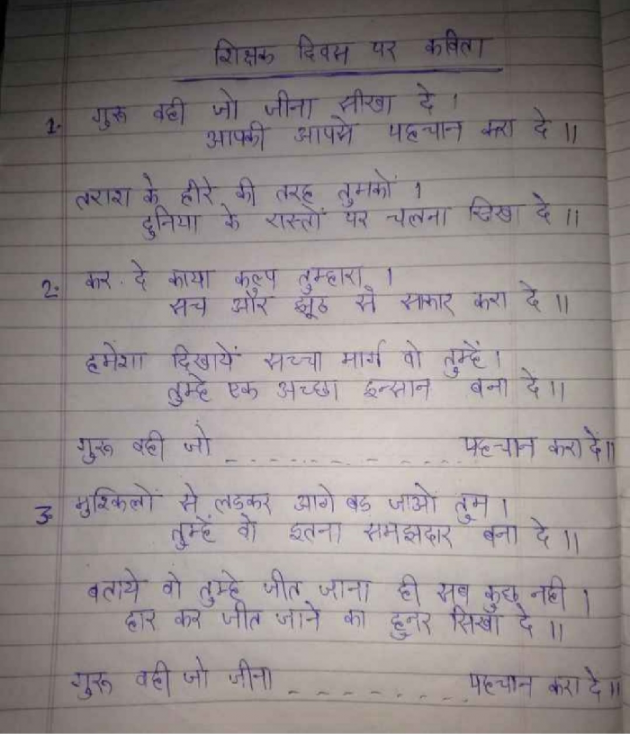 शिक्षक दिवस पर कविता
1. गुरू वही जो जीना सीखा दे ।
आपकी आपसे पहचान करा दे ॥
तराश के हीरे की तरह तुमकों ।
दुनिया के रास्तों पर चलना सिखा दे ॥
2. कर दे काया कल्प तुम्हारा ।
सच और झूठ से साकार करा दे ॥
हमेशा दिखायें सच्चा मार्ग वो तुम्हें ।
तुम्हे एक अच्छा इन्सान बना दे ॥
गुरू वही जो _ _ _ _ _ _ _ _ _ _ पहचान करा दें ॥
3. मुश्किलों से लडकर आगे बड जाओं तुम ।
तुम्हें वो इतना समझदार बना दे ॥
बताये वो तुम्हे जीत जाना ही सब कुछ नही ।
हार कर जीत जाने का हुनर सिखा दे ॥
गुरू वही जो जीना _ _ _ _ _ _ _ पहचान करा दे ॥